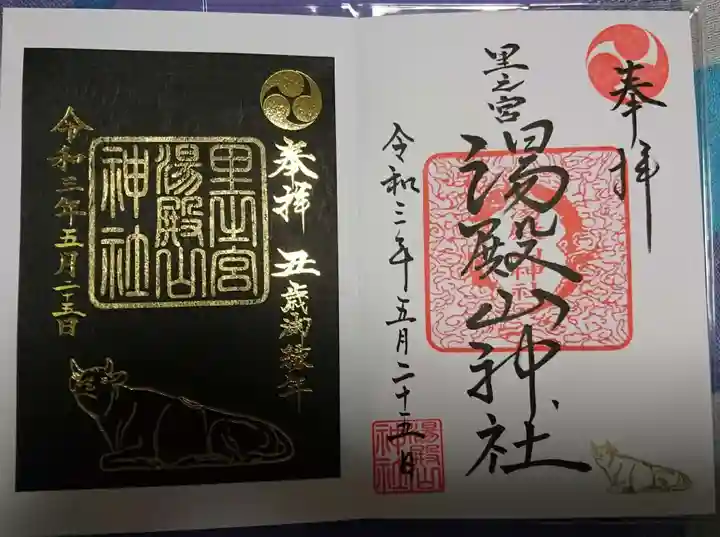 奉拝
里之宮
湯殿山神社
令和三年五月二十五日
湯殿山
神社
奉拝 丑歳御縁年
里之宮
湯殿山
神社
令和三年五月二十五日